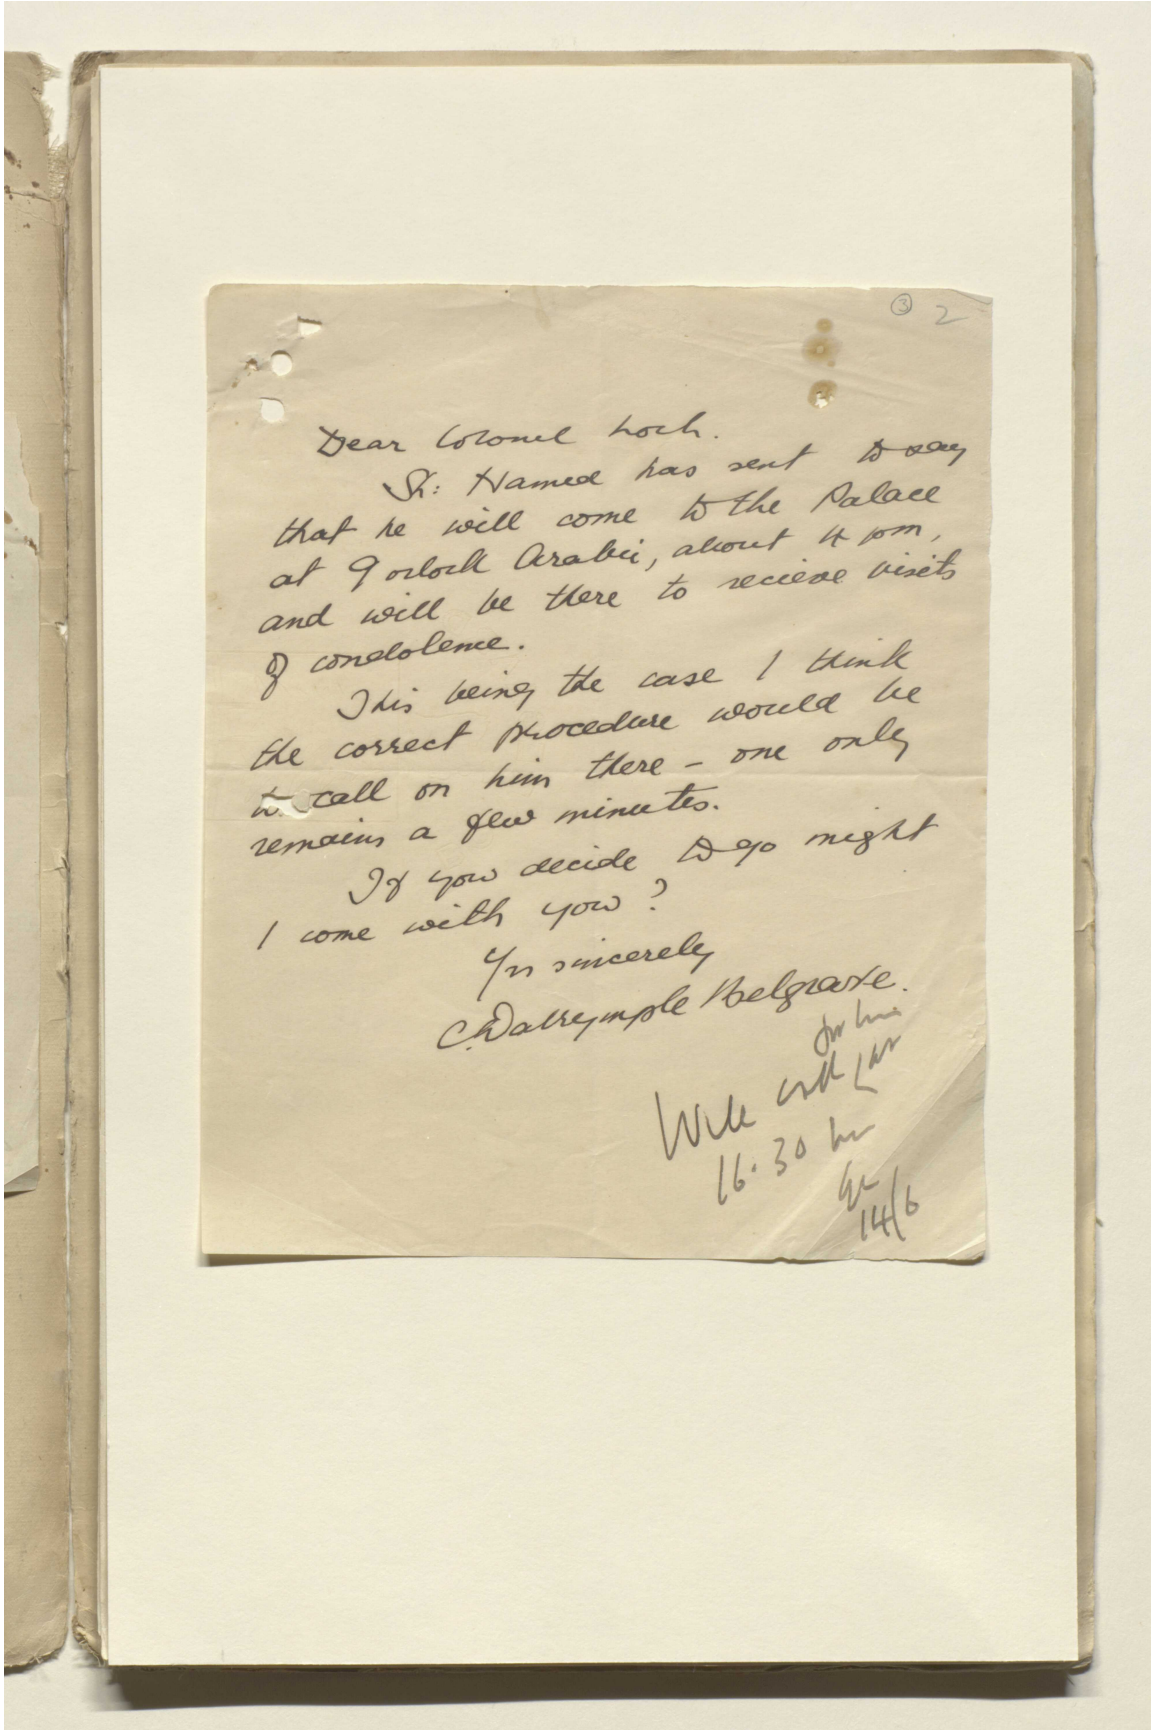 ③ 2
Dear Colonel Loch.
Sh: Hamed has sent to say
that he will come to the Palace
at 9 oclock Arabic, about 4 pm,
and will be there to recieve visits
of condolence.
This being the case I think
the correct procedure would be
to call on him there – one only
remains a few minutes.
If you decide to go might
I come with you?
Yrs sincerely
C. Dalrymple Belgrave.
Will call for
16.30
14/6